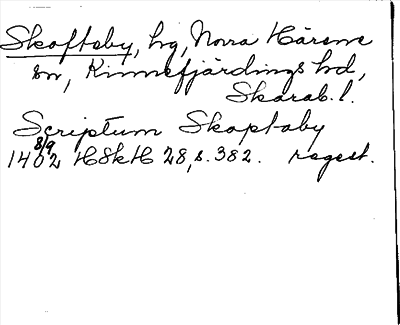 Skoftaby, hg, Norra Härene
sn, Kinnefjärdings hd,
Skarab. l.
Scriptum Skaptaby
8/9
1402 HSkH 28, s. 382. regest.